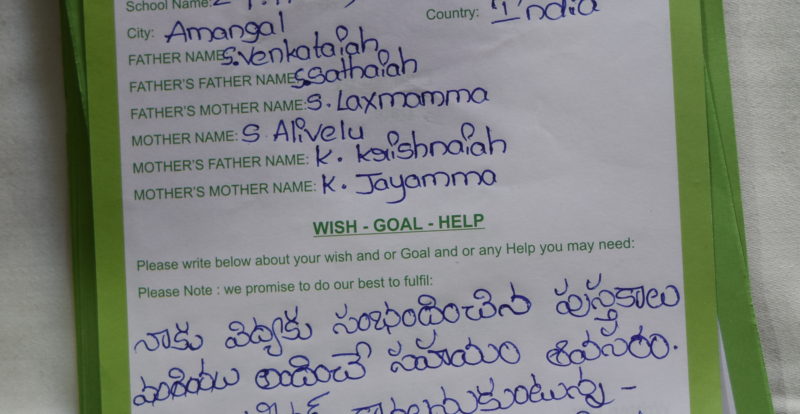 School Name:
City: Amangal Country: India
FATHER NAME S. Venkataiah
FATHER'S FATHER NAME S. Sathaiah
FATHER'S MOTHER NAME: S. Laxmamma
MOTHER NAME: S Alivelu
MOTHER'S FATHER NAME: K. Krishnaiah
MOTHER'S MOTHER NAME: K. Jayamma
WISH - GOAL - HELP
Please write below about your wish and or Goal and or any Help you may need:
Please Note : we promise to do our best to fulfil:
నాకు విద్యకు సంభందించిన పుస్తకాలు
మరియు అందించే సహాయం అవసరం.